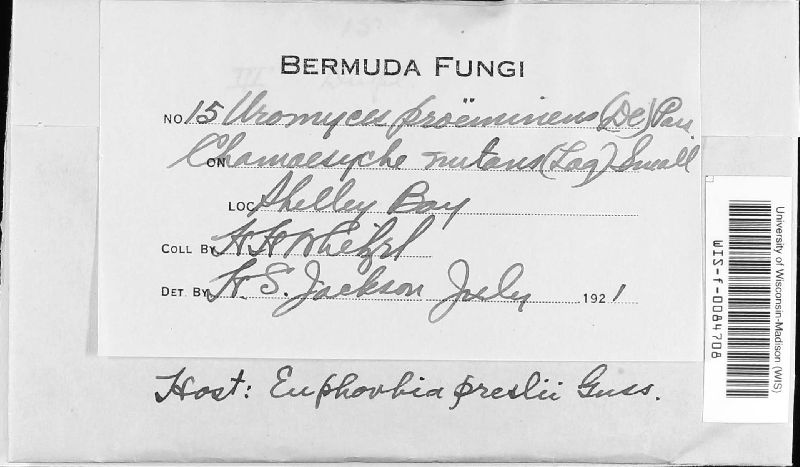 BERMUDA FUNGI
NO 15 Uromyces proëminens (DC) Pas.
ON Chamaesyche nutans (Lag) Small
LOC Shelley Bay
COLL BY H H Whetzel
DET. BY H. S. Jackson July 1921
Host: Euphorbia preslii Guss.
University of Wisconsin-Madison (WIS)
WIS-f-0084708